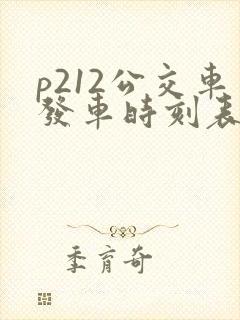 p212公交車
發車時刻表
季育奇